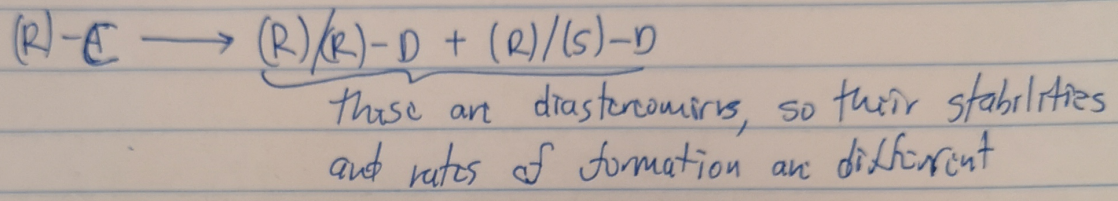 (R)-C ⟶ (R)/(R)-D + (R)/(S)-D
these are diastereomers, so their stabilities
and rates of formation are different